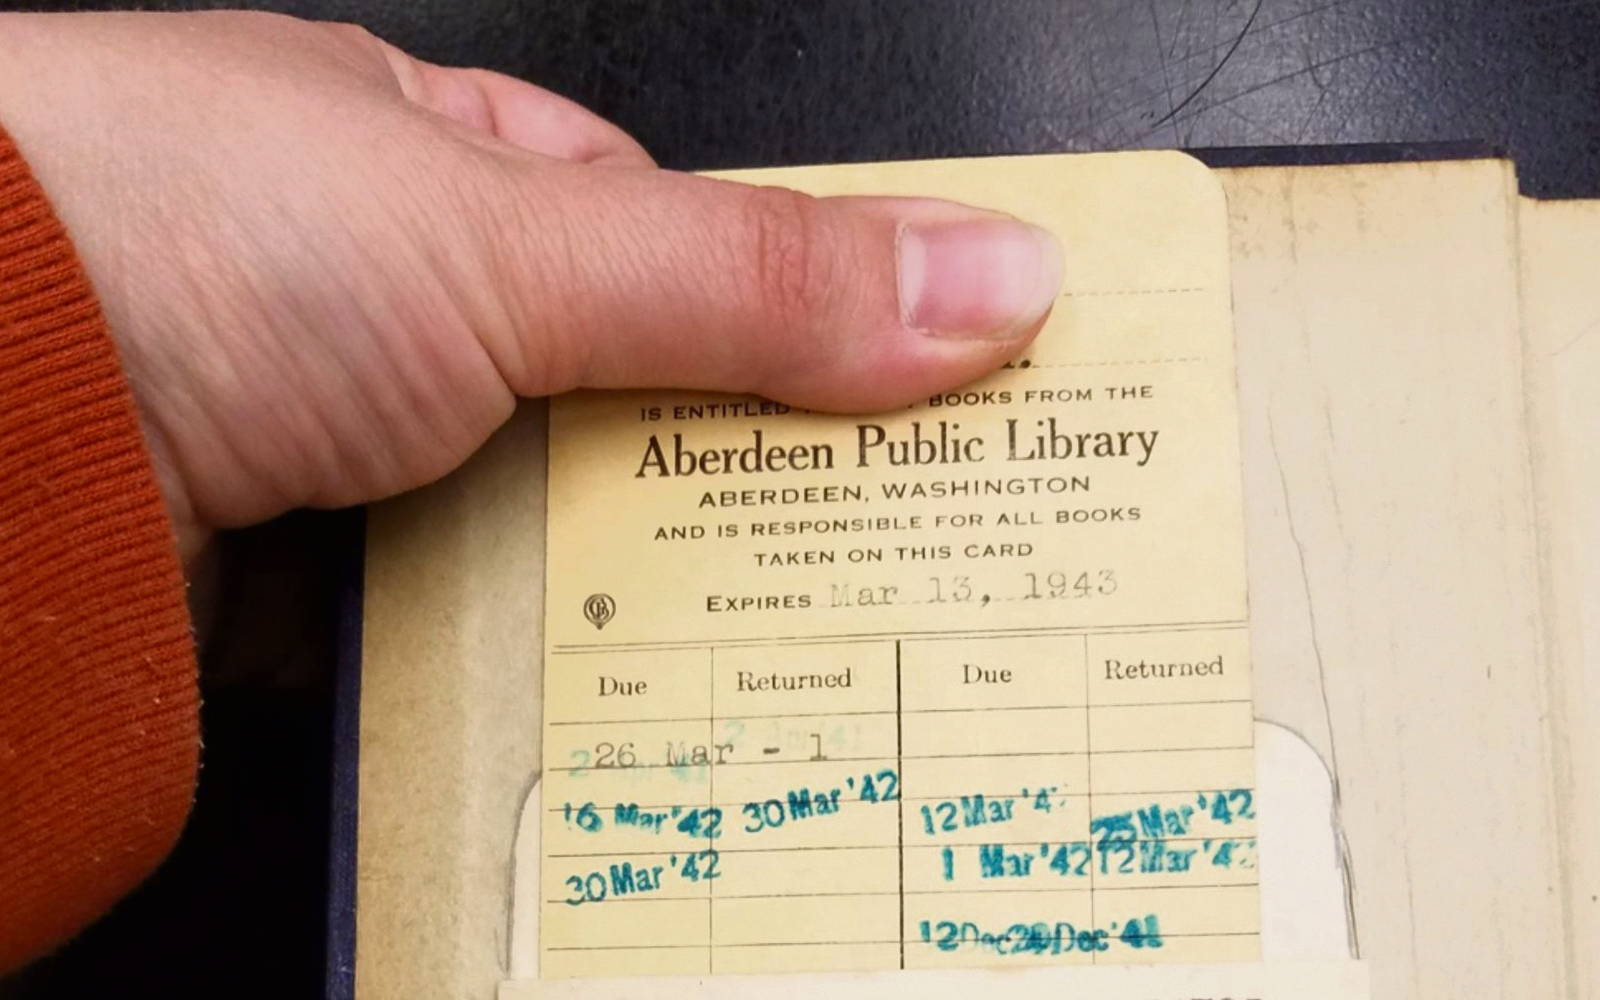 IS ENTITLED BOOKS FROM THE
Aberdeen Public Library
ABERDEEN, WASHINGTON
AND IS RESPONSIBLE FOR ALL BOOKS
TAKEN ON THIS CARD
EXPIRES Mar 13, 1943
Due Returned Due Returned
26 Mar - 1
16 Mar '42 30 Mar '42 12 Mar 25 Mar '42
30 Mar '42 1 Mar '42 12 Mar
12 Dec Dec '41